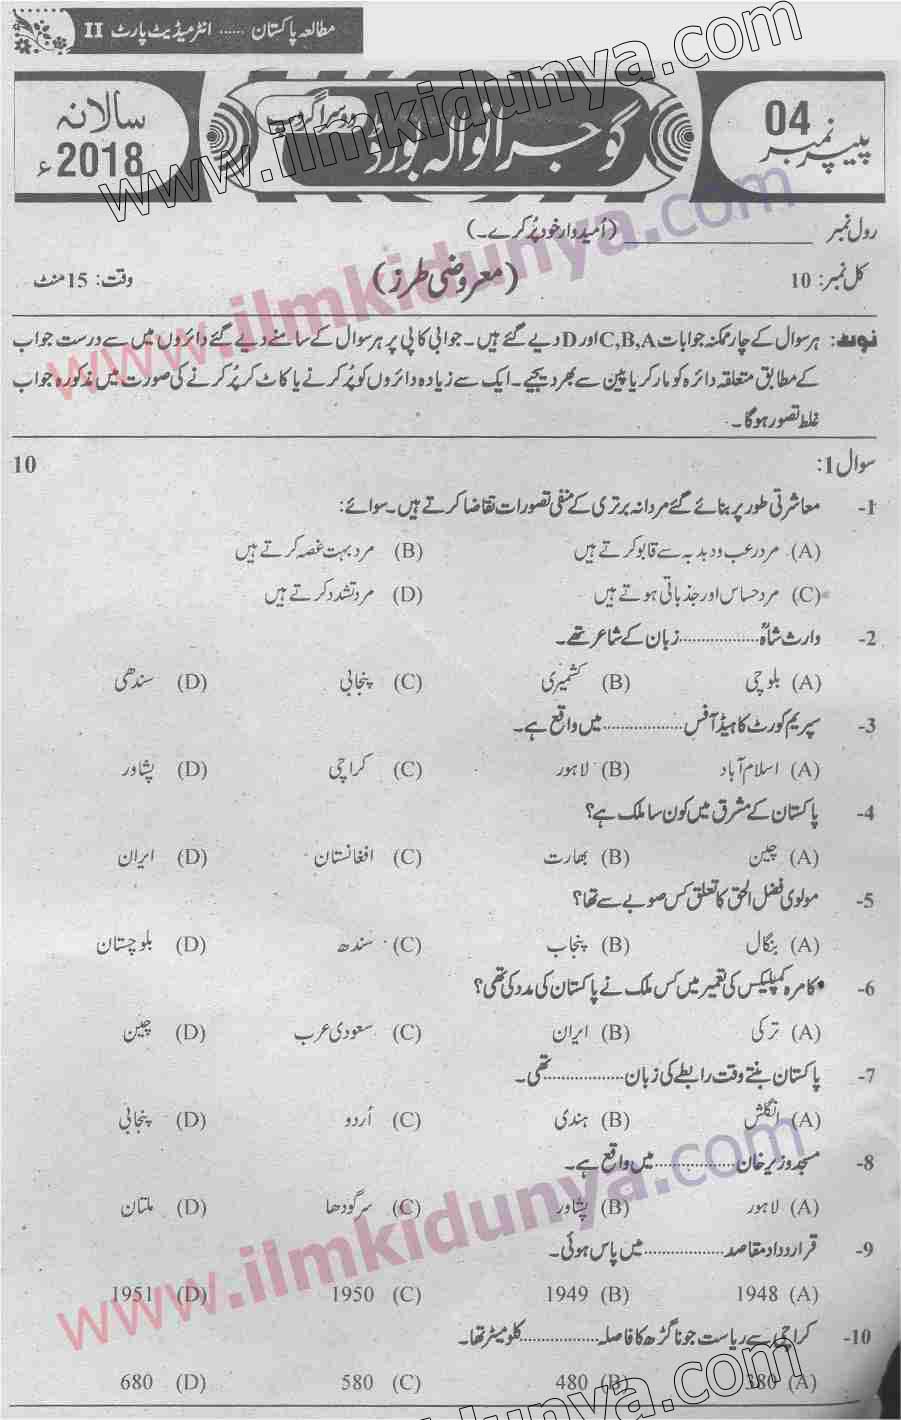 مطالعہ پاکستان ...... انٹرمیڈیٹ پارٹ II
پیپر نمبر 04
گوجرانوالہ بورڈ
دوسرا گروپ
سالانہ 2018ء
رول نمبر ____________ (اُمیدوار خود پُر کرے۔)
کل نمبر: 10 (معروضی طرز) وقت: 15 منٹ
نوٹ: ہر سوال کے چار ممکنہ جوابات C,B,A اور D دیے گئے ہیں۔ جوابی کاپی پر ہر سوال کے سامنے دیے گئے دائروں میں سے درست جواب
کے مطابق متعلقہ دائرہ کو مارکر یا پین سے بھر دیجیے۔ ایک سے زیادہ دائروں کو پُر کرنے یا کاٹ کر پُر کرنے کی صورت میں مذکورہ جواب
غلط تصور ہوگا۔
سوال 1: 10
1- معاشرتی طور پر بنائے گئے مردانہ برتری کے منفی تصورات تقاضا کرتے ہیں۔ سوائے:
(A) مرد رعب و دبدبہ سے قابو کرتے ہیں (B) مرد بہت غصہ کرتے ہیں
(C) مرد حساس اور جذباتی ہوتے ہیں (D) مرد تشدد کرتے ہیں
2- وارث شاہؒ .................. زبان کے شاعر تھے۔
(A) بلوچی (B) کشمیری (C) پنجابی (D) سندھی
3- سپریم کورٹ کا ہیڈ آفس .................. میں واقع ہے۔
(A) اسلام آباد (B) لاہور (C) کراچی (D) پشاور
4- پاکستان کے مشرق میں کون سا ملک ہے؟
(A) چین (B) بھارت (C) افغانستان (D) ایران
5- مولوی فضل الحق کا تعلق کس صوبے سے تھا؟
(A) بنگال (B) پنجاب (C) سندھ (D) بلوچستان
6- کامرہ کمپلیکس کی تعمیر میں کس ملک نے پاکستان کی مدد کی تھی؟
(A) ترکی (B) ایران (C) سعودی عرب (D) چین
7- پاکستان بنتے وقت رابطے کی زبان .................. تھی۔
(A) انگلش (B) ہندی (C) اُردو (D) پنجابی
8- مسجد وزیر خان .................. میں واقع ہے۔
(A) لاہور (B) پشاور (C) سرگودھا (D) ملتان
9- قرارداد مقاصد .................. میں پاس ہوئی۔
(A) 1948 (B) 1949 (C) 1950 (D) 1951
10- کراچی سے ریاست جوناگڑھ کا فاصلہ .................. کلومیٹر تھا۔
(A) 380 (B) 480 (C) 580 (D) 680
www.ilmkidunya.com
www.ilmkidunya.com
www.ilmkidunya.com
www.ilmkidunya.com